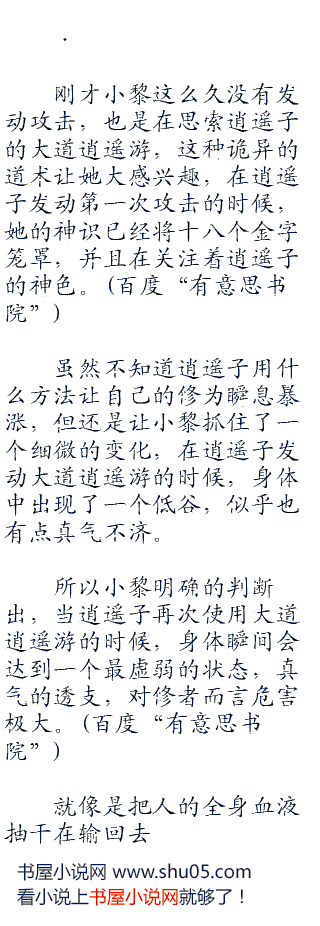 刚才小黎这么久没有发
动攻击，也是在思索逍遥子
的大道逍遥游，这种诡异的
道术让她大感兴趣，在逍遥
子发动第一次攻击的时候，
她的神识已经将十八个金字
笼罩，并且在关注着逍遥子
的神色。(百度“有意思书
院”)
虽然不知道逍遥子用什
么方法让自己的修为瞬息暴
涨，但还是让小黎抓住了一
个细微的变化，在逍遥子发
动大道逍遥游的时候，身体
中出现了一个低谷，似乎也
有点真气不济。
所以小黎明确的判断
出，当逍遥子再次使用大道
逍遥游的时候，身体瞬间会
达到一个最虚弱的状态，真
气的透支，对修者而言危害
极大。(百度“有意思书
院”)
就像是把人的全身血液
抽干在输回去
书屋小说网 www.shu05.com
看小说上书屋小说网就够了！